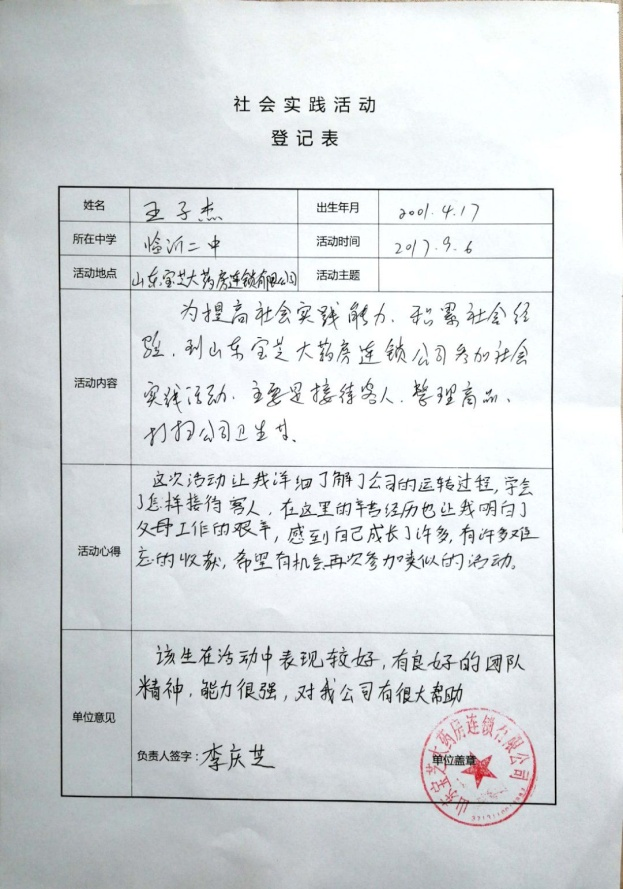 社会实践活动
登记表
姓名 王子杰 出生年月 2001.4.17
所在中学 临沂二中 活动时间 2017.9.6
活动地点 山东宝芝大药房连锁有限公司 活动主题
活动内容
为提高社会实践能力、积累社会经
验,到山东宝芝大药房连锁公司参加社会
实践活动。主要是接待客人、整理商品、
打扫公司卫生等。
活动心得
这次活动让我详细了解了公司的运转过程,学会
了怎样接待客人,在这里的辛苦经历也让我明白了
父母工作的艰辛,感到自己成长了许多,有许多难
忘的收获,希望有机会再次参加类似的活动。
单位意见
该生在活动中表现较好,有良好的团队
精神,能力很强,对我公司有很大帮助
负责人签字:李庆芝
单位盖章
山东宝芝大药房连锁有限公司